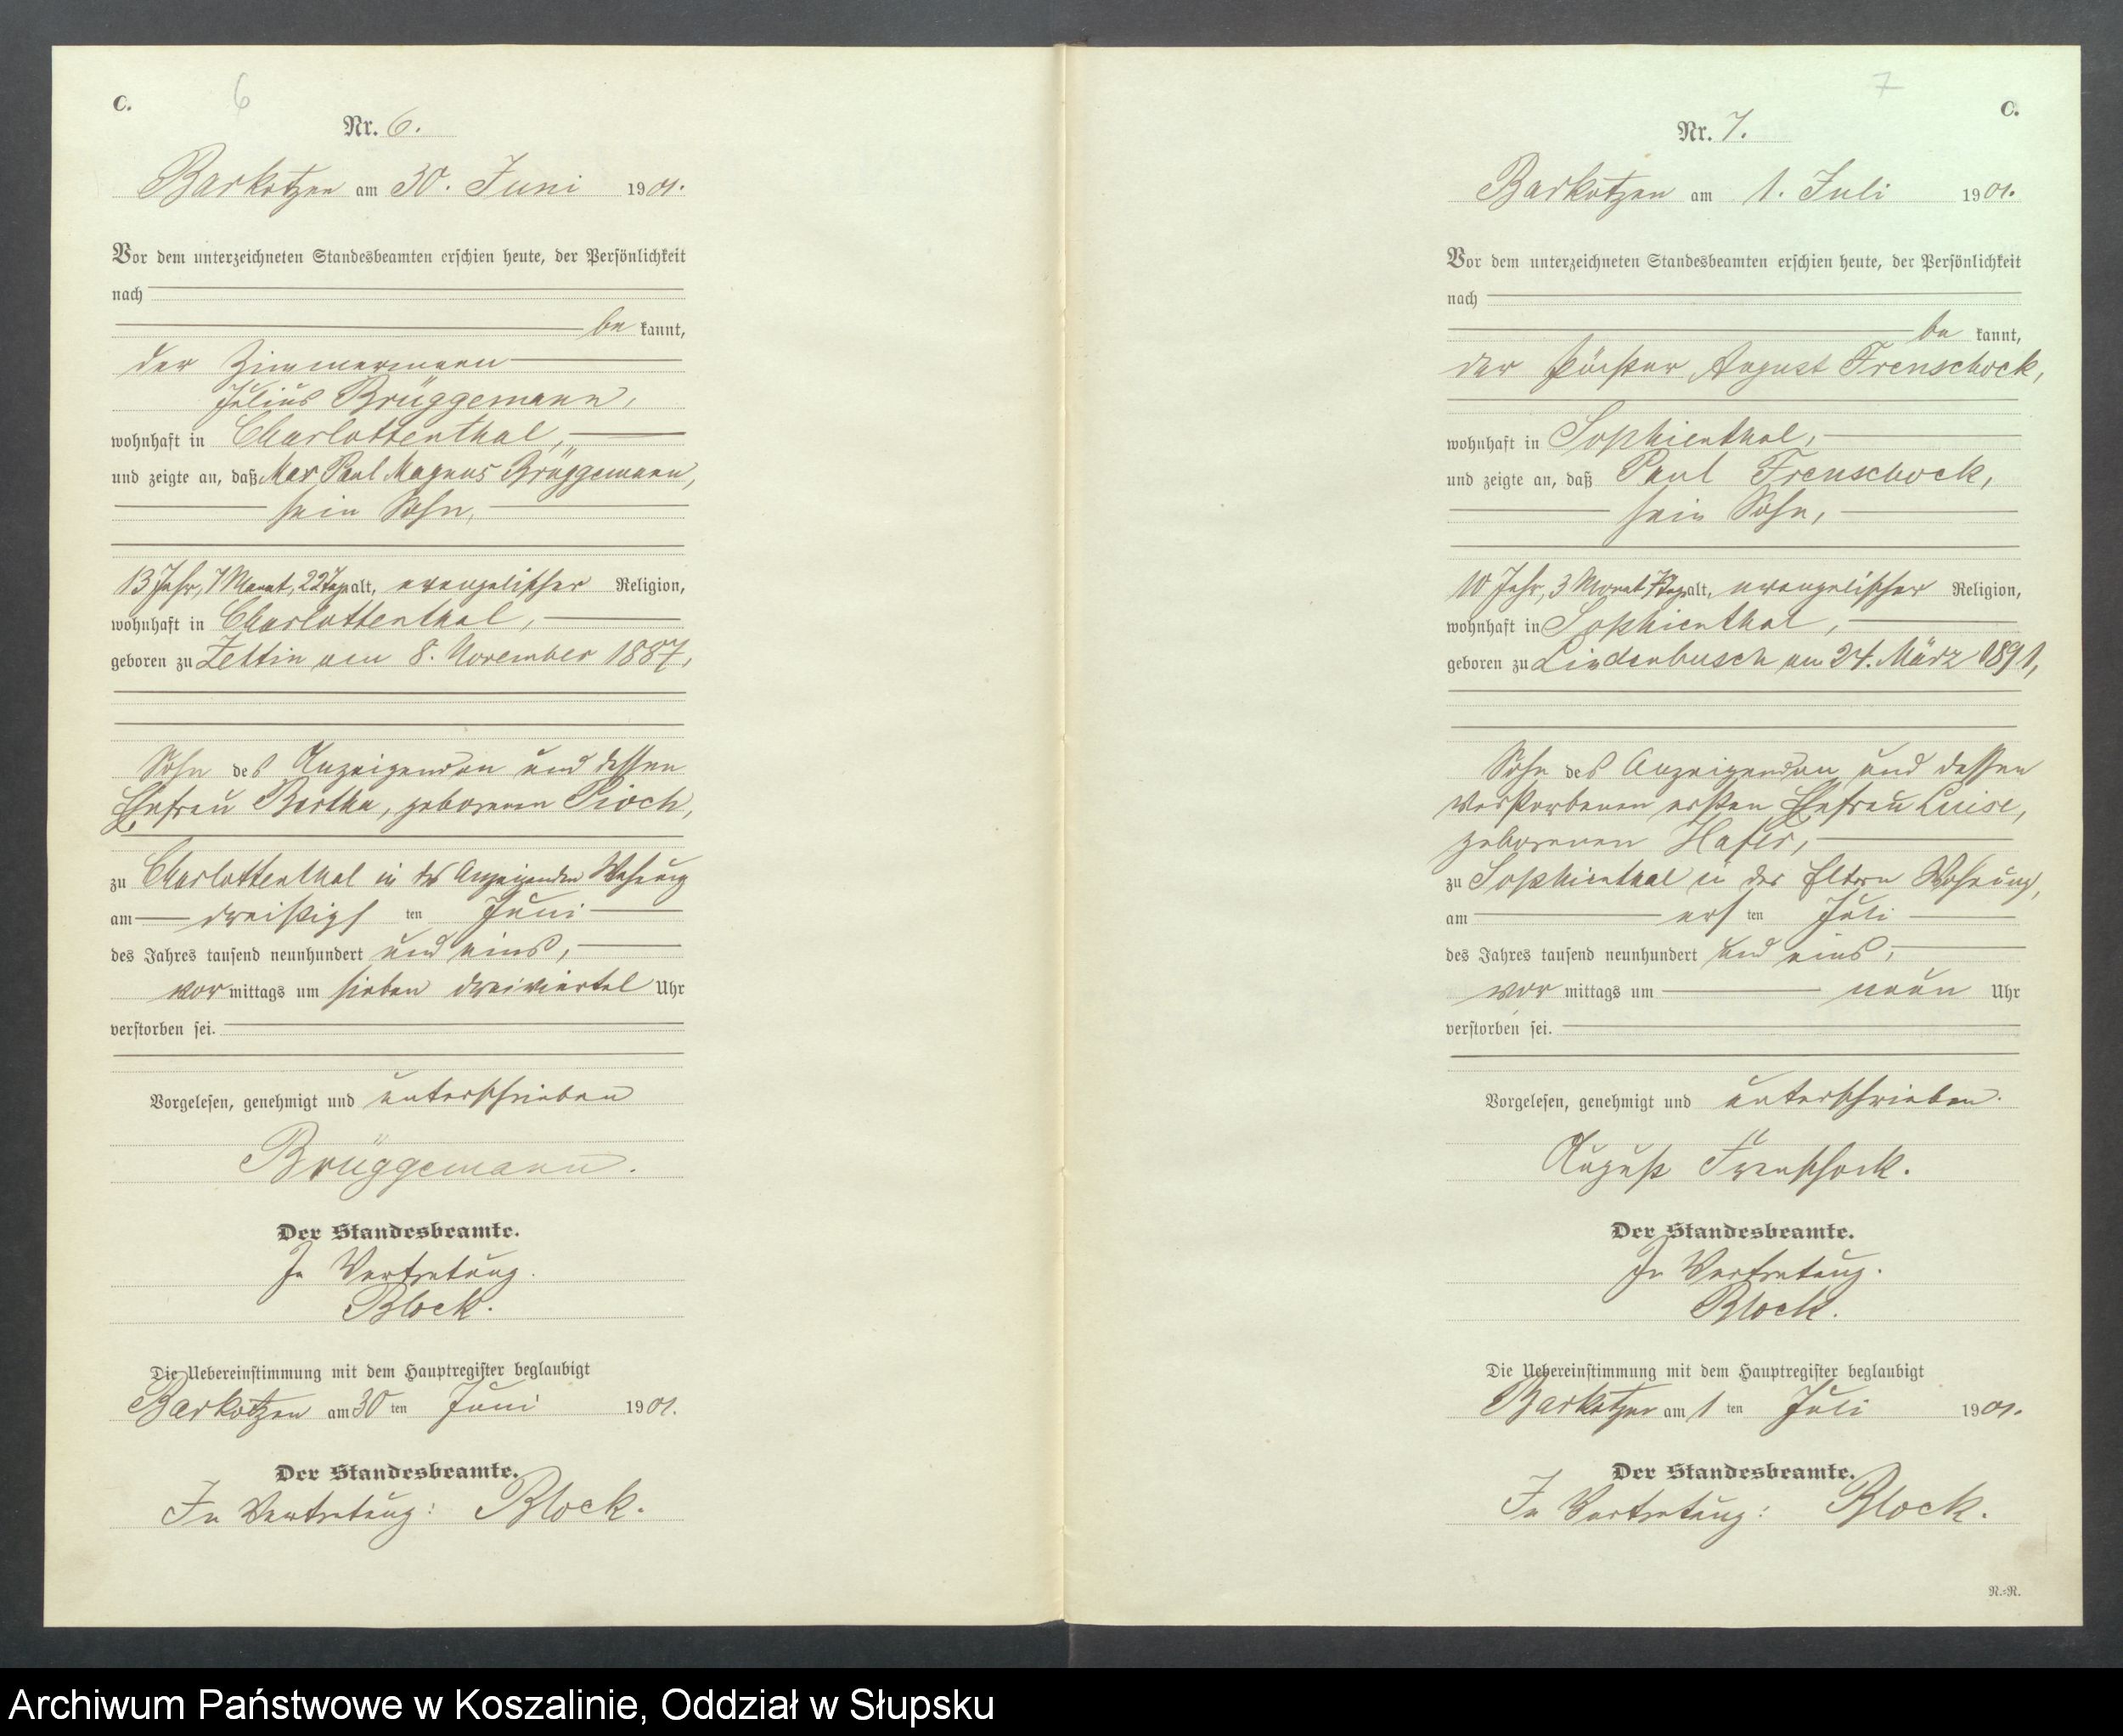 C.
6
Nr. 6.
Barkotzen am 30. Juni 1901.
Vor dem unterzeichneten Standesbeamten erschien heute, der Persönlichkeit
nach
be kannt,
der Zimmermann
Julius Brüggemann,
wohnhaft in Charlottenthal,
und zeigte an, daß Max Paul Magnus Brüggemann,
sein Sohn,
13 Jahr, 7 Monat, 22 Tage alt, evangelischer Religion,
wohnhaft in Charlottenthal,
geboren zu Zettin am 8. November 1887,
Sohn des Anzeigenden und dessen
Ehefrau Bertha, geborenen Pioch,
zu Charlottenthal in des Anzeigenden Wohnung
am dreißigst ten Juni
des Jahres tausend neunhundert und eins,
vor mittags um sieben dreiviertel Uhr
verstorben sei.
Vorgelesen, genehmigt und unterschrieben
Brüggemann.
Der Standesbeamte.
In Vertretung.
Block.
Die Uebereinstimmung mit dem Hauptregister beglaubigt
Barkotzen am 30 ten Juni 1901.
Der Standesbeamte.
In Vertretung: Block.
7
C.
Nr. 7.
Barkotzen am 1. Juli 1901.
Vor dem unterzeichneten Standesbeamten erschien heute, der Persönlichkeit
nach
be kannt,
der Förster August Frenschock,
wohnhaft in Sophienthal,
und zeigte an, daß Paul Frenschock,
sein Sohn,
10 Jahr, 3 Monat 7 Tage alt, evangelischer Religion,
wohnhaft in Sophienthal,
geboren zu Lindenbusch am 24. März 1891,
Sohn des Anzeigenden und dessen
verstorbenen ersten Ehefrau Luise,
geborenen Hafer,
zu Sophienthal in der Eltern Wohnung,
am ers ten Juli
des Jahres tausend neunhundert und eins,
vor mittags um neun Uhr
verstorben sei.
Vorgelesen, genehmigt und unterschrieben.
August Frenschock.
Der Standesbeamte.
In Vertretung.
Block.
Die Uebereinstimmung mit dem Hauptregister beglaubigt
Barkotzen am 1 ten Juli 1901.
Der Standesbeamte.
In Vertretung: Block.
N.=N.
Archiwum Państwowe w Koszalinie, Oddział w Słupsku